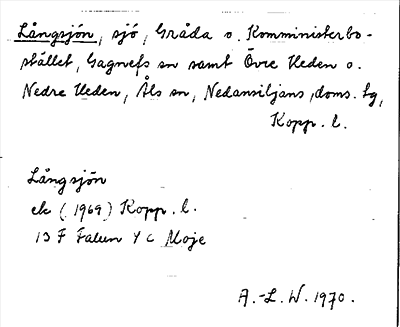 Långsjön, sjö, Gråda o. Komministerbo-
stället, Gagnefs sn samt Övre Heden o.
Nedre Heden, Åls sn, Nedansiljans, doms. tg,
Kopp. l.
Långsjön
ek (1969) Kopp. l.
13 F Falun 4 c Moje
A.-L. W. 1970.